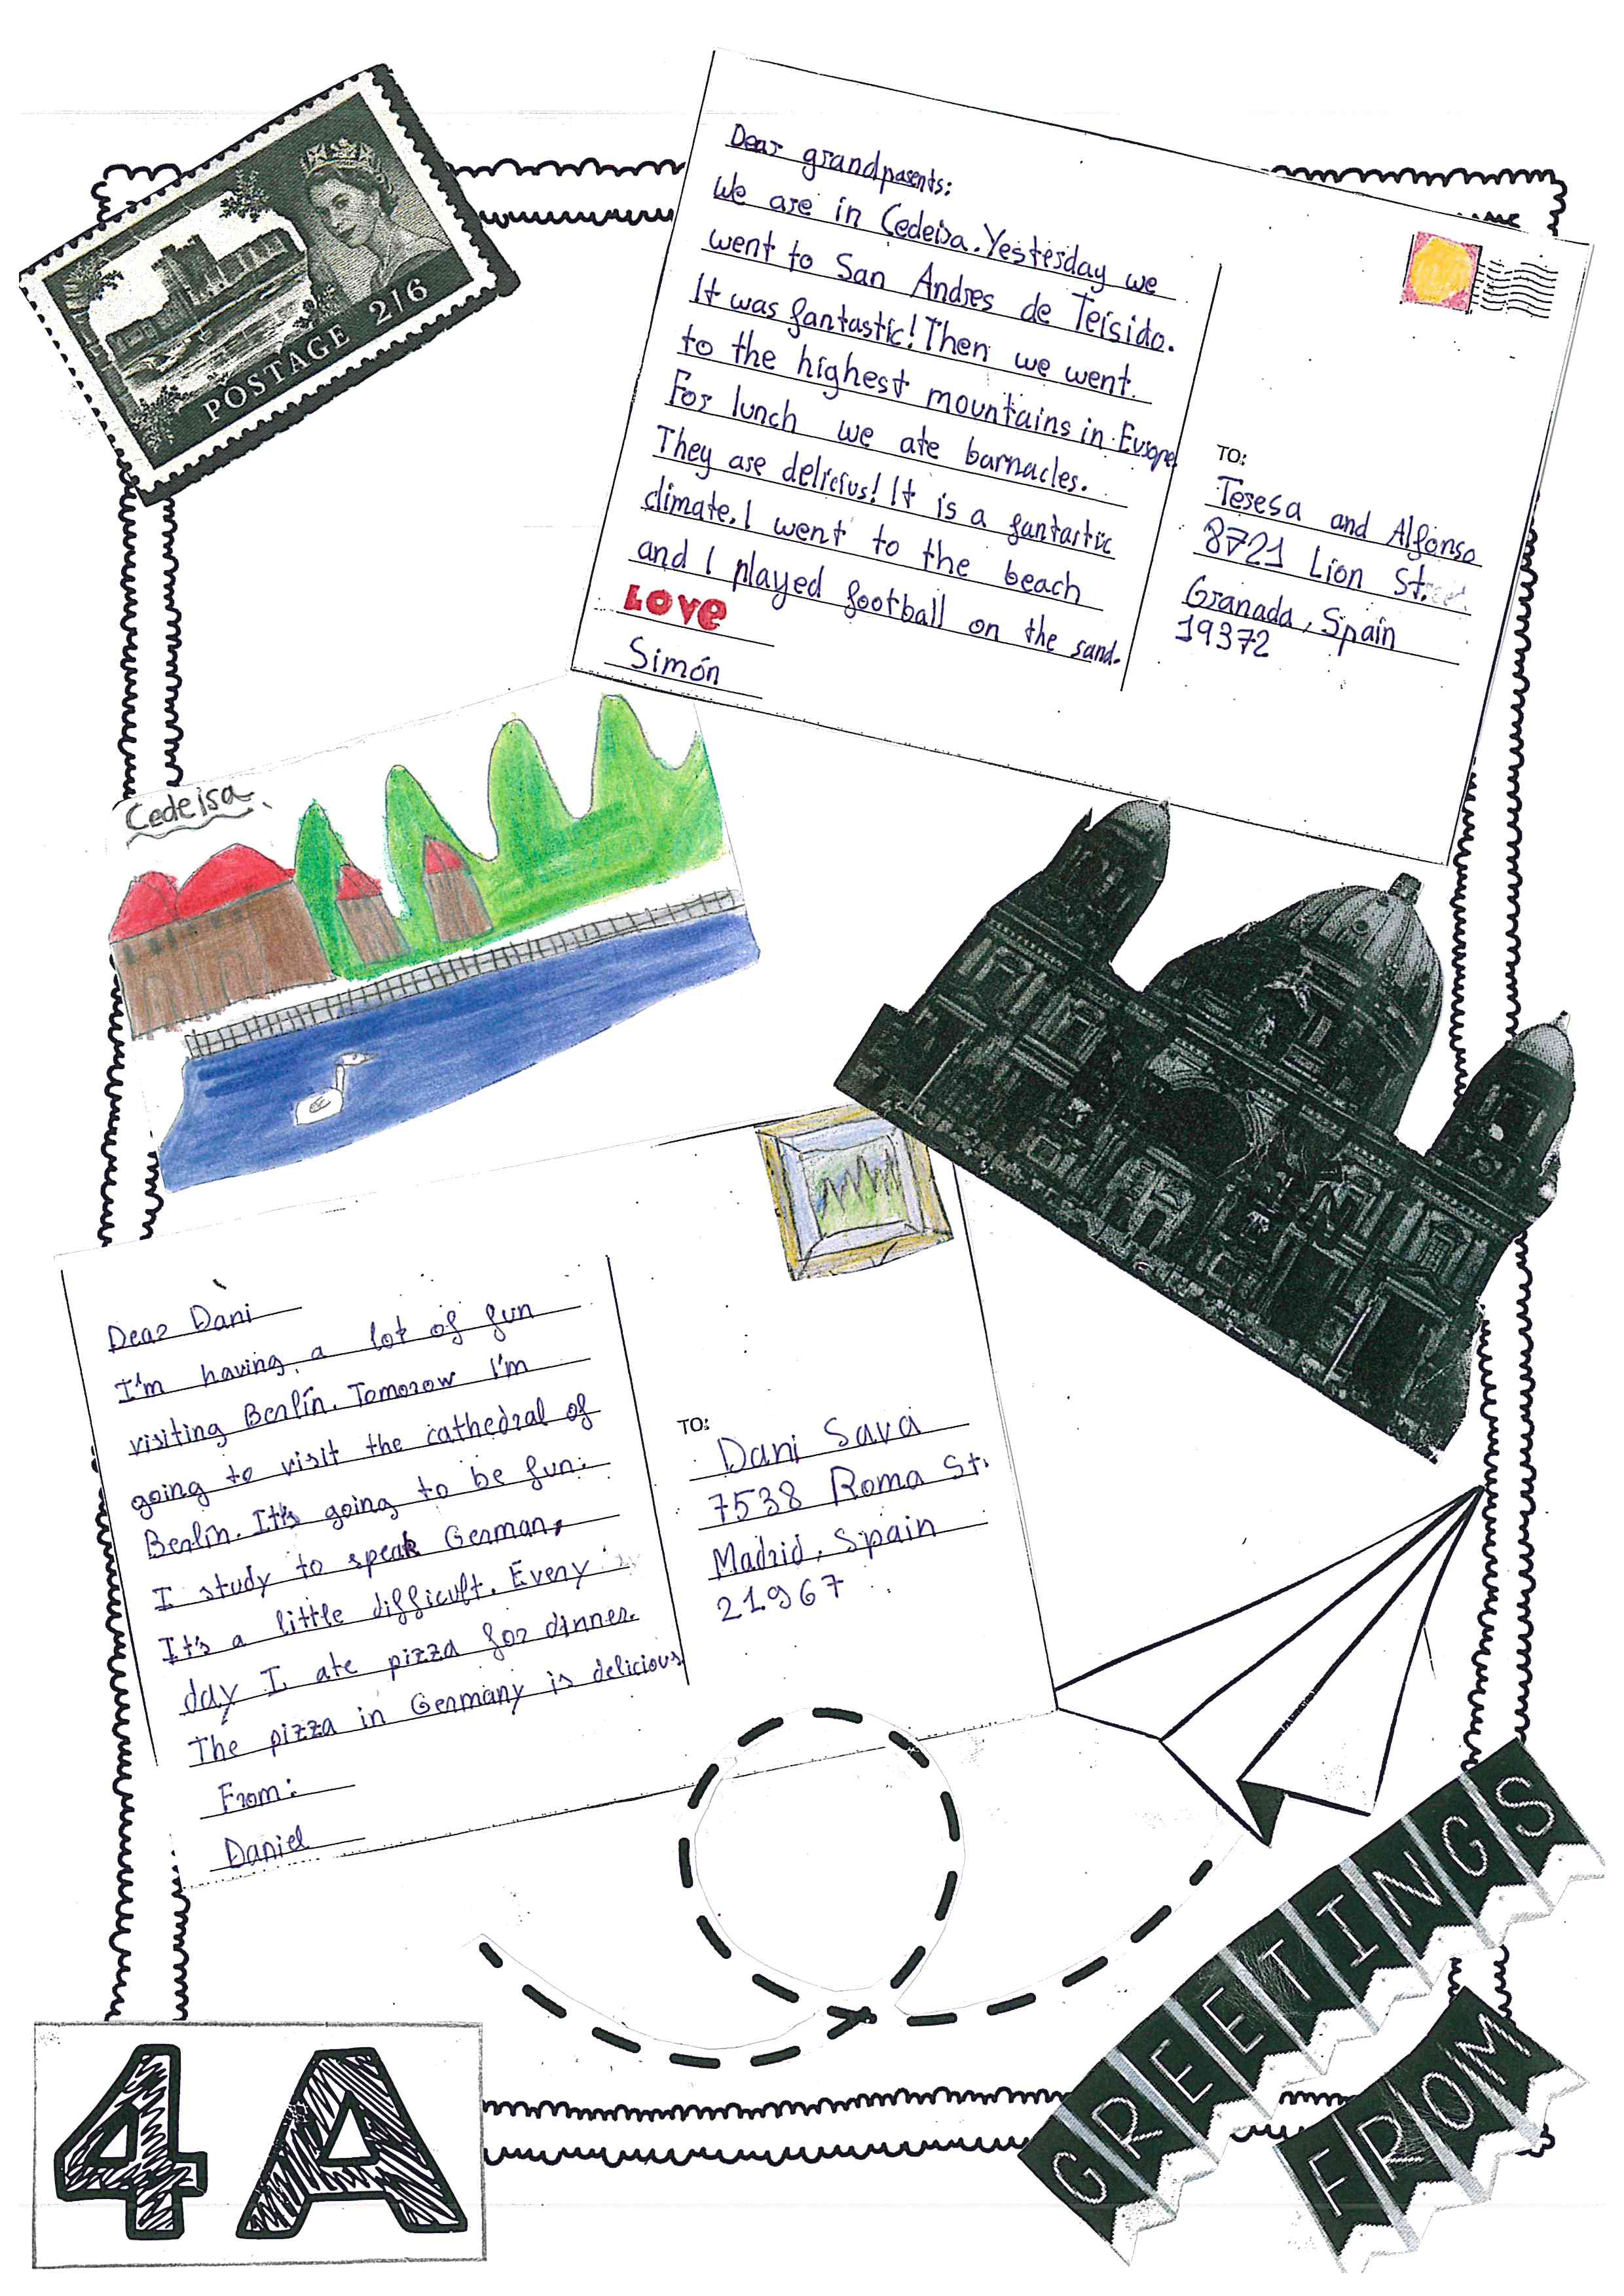 POSTAGE 2/6
Dear grandparents:
We are in Cedeira. Yesterday we
went to San Andres de Teisido.
It was fantastic! Then we went
to the highest mountains in Europe.
For lunch we ate barnacles.
They are delicius! It is a fantastic
climate. I went to the beach
and I played football on the sand.
LOVe
Simón
TO:
Teresa and Alfonso
8721 Lion St.
Granada, Spain
19372
Cedeira
Dear Dani
I'm having a lot of fun
visiting Berlín. Tomorow I'm
going to visit the cathedral of
Berlín. It's going to be fun.
I study to speak German,
It's a little difficult. Every
day I ate pizza for dinner.
The pizza in Germany is delicious
From:
Daniel
TO:
Dani Sava
7538 Roma St.
Madrid, Spain
21967
GREETINGS
FROM
4A